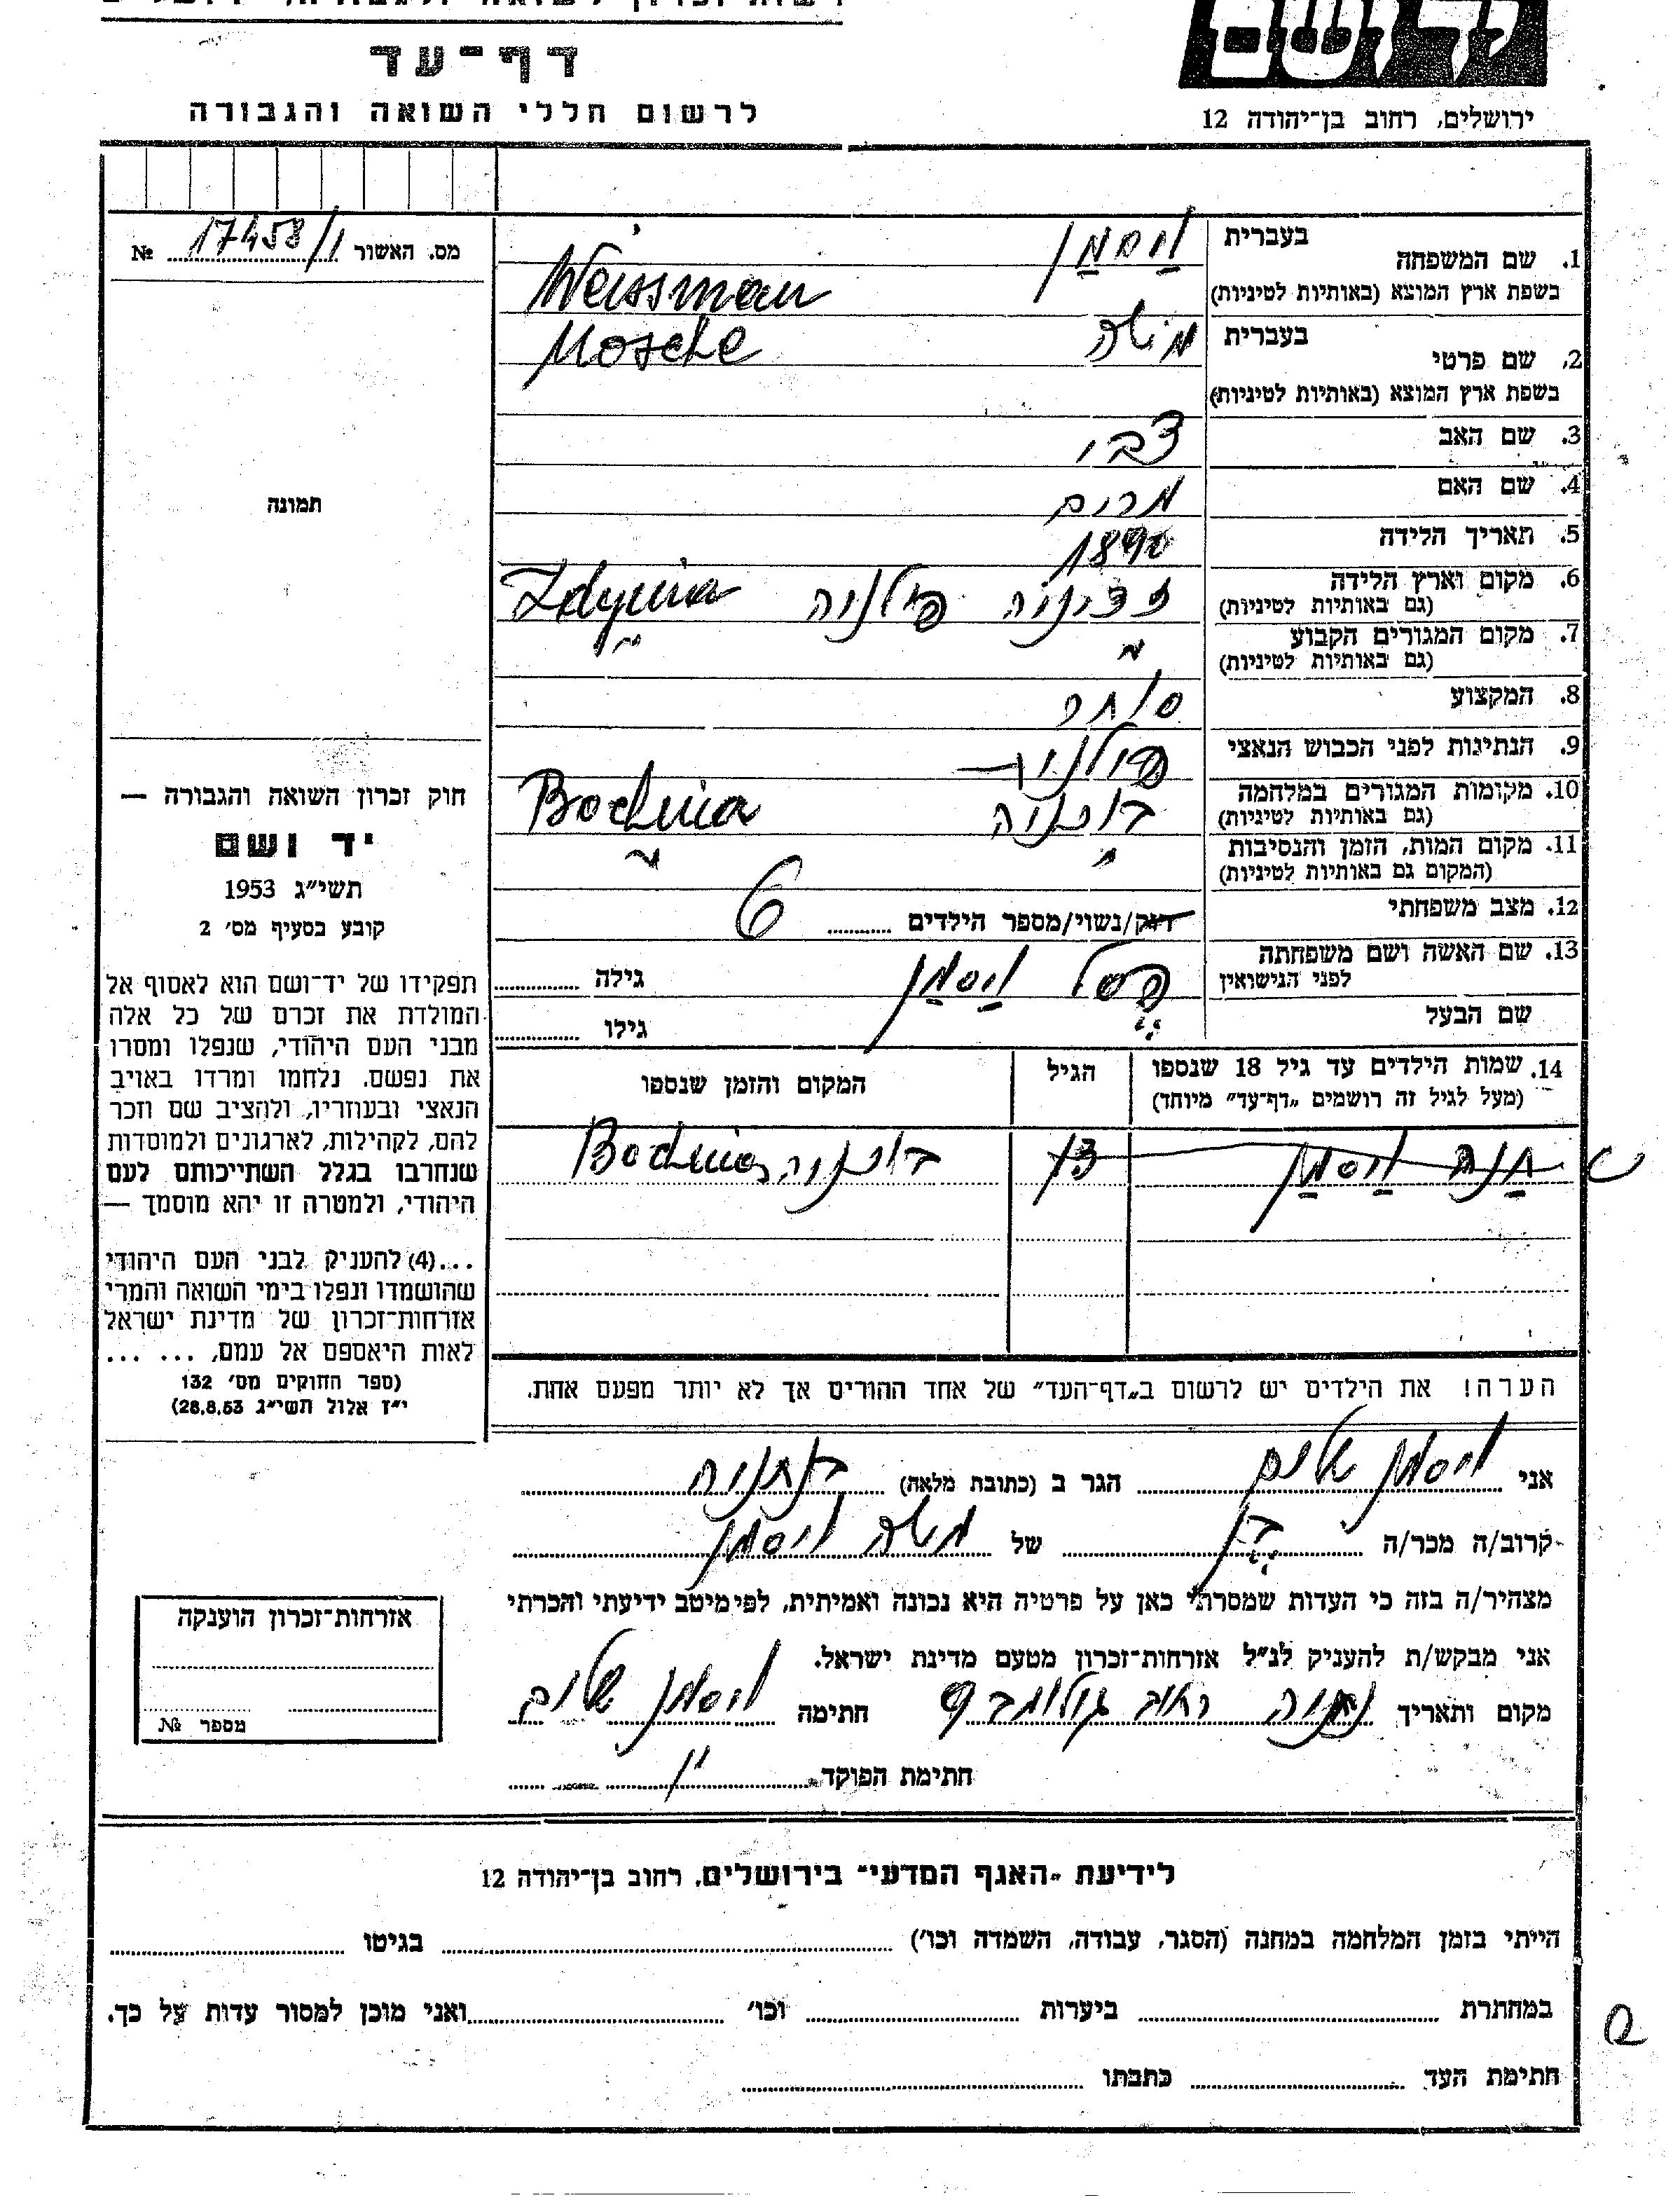 דף־עד
לרשום חללי השואה והגבורה
ירושלים, רחוב בן־יהודה 12
מס. האשור 17458/1 №
1. שם המשפחה
בעברית וַיסמַן
בשפת ארץ המוצא (באותיות לטיניות) Weissman
2. שם פרטי
בעברית משה
בשפת ארץ המוצא (באותיות לטיניות) Mosche
3. שם האב צבי
4. שם האם מרים
5. תאריך הלידה 1890
6. מקום וארץ הלידה
(גם באותיות לטיניות) פולניה Zdynia
7. מקום המגורים הקבוע
(גם באותיות לטיניות)
8. המקצוע סוחר
9. הנתינות לפני הכבוש הנאצי
10. מקומות המגורים במלחמה
(גם באותיות לטיניות) בוכניה Bochnia
11. מקום המות, הזמן והנסיבות
(המקום גם באותיות לטיניות)
12. מצב משפחתי
רווק/נשוי/מספר הילדים 6
13. שם האשה ושם משפחתה
לפני הנישואין וַיסמַן גילה
שם הבעל גילו
14. שמות הילדים עד גיל 18 שנספו
(מעל לגיל זה רושמים „דף־עד" מיוחד)
הגיל
המקום והזמן שנספו
חַנה וַיסמַן
בוכניה Bochnia
הערה! את הילדים יש לרשום ב„דף־העד" של אחד ההורים אך לא יותר מפעם אחת.
אני ויסמן שלום הגר ב (כתובת מלאה) בנתניה
קרוב/ה מכר/ה בן של משה ויסמן
מצהיר/ה בזה כי העדות שמסרתי כאן על פרטיה היא נכונה ואמיתית, לפי מיטב ידיעתי והכרתי
אני מבקש/ת להעניק לנ"ל אזרחות־זכרון מטעם מדינת ישראל.
מקום ותאריך נתניה חתימה ויסמן שלום
חתימת הפוקד
תמונה
חוק זכרון השואה והגבורה —
יד ושם
תשי"ג 1953
קובע בסעיף מס׳ 2
תפקידו של יד־ושם הוא לאסוף אל
המולדת את זכרם של כל אלה
מבני העם היהודי, שנפלו ומסרו
את נפשם. נלחמו ומרדו באויב
הנאצי ובעוזריו, ולהציב שם וזכר
להם, לקהילות, לארגונים ולמוסדות
שנחרבו בגלל השתייכותם לעם
היהודי, ולמטרה זו יהא מוסמך —
...(4) להעניק לבני העם היהודי
שהושמדו ונפלו בימי השואה והמרי
אזרחות־זכרון של מדינת ישראל
לאות היאספם אל עמם, ... ...
(ספר החוקים מס׳ 132
י"ז אלול תשי"ג 28.8.53)
אזרחות־זכרון הוענקה
מספר №
לידיעת „האגף המדעי" בירושלים, רחוב בן־יהודה 12
הייתי בזמן המלחמה במחנה (הסגר, עבודה, השמדה וכו׳) בגיטו
במחתרת ביערות וכו׳ ואני מוכן למסור עדות על כך.
חתימת העד כתבתו